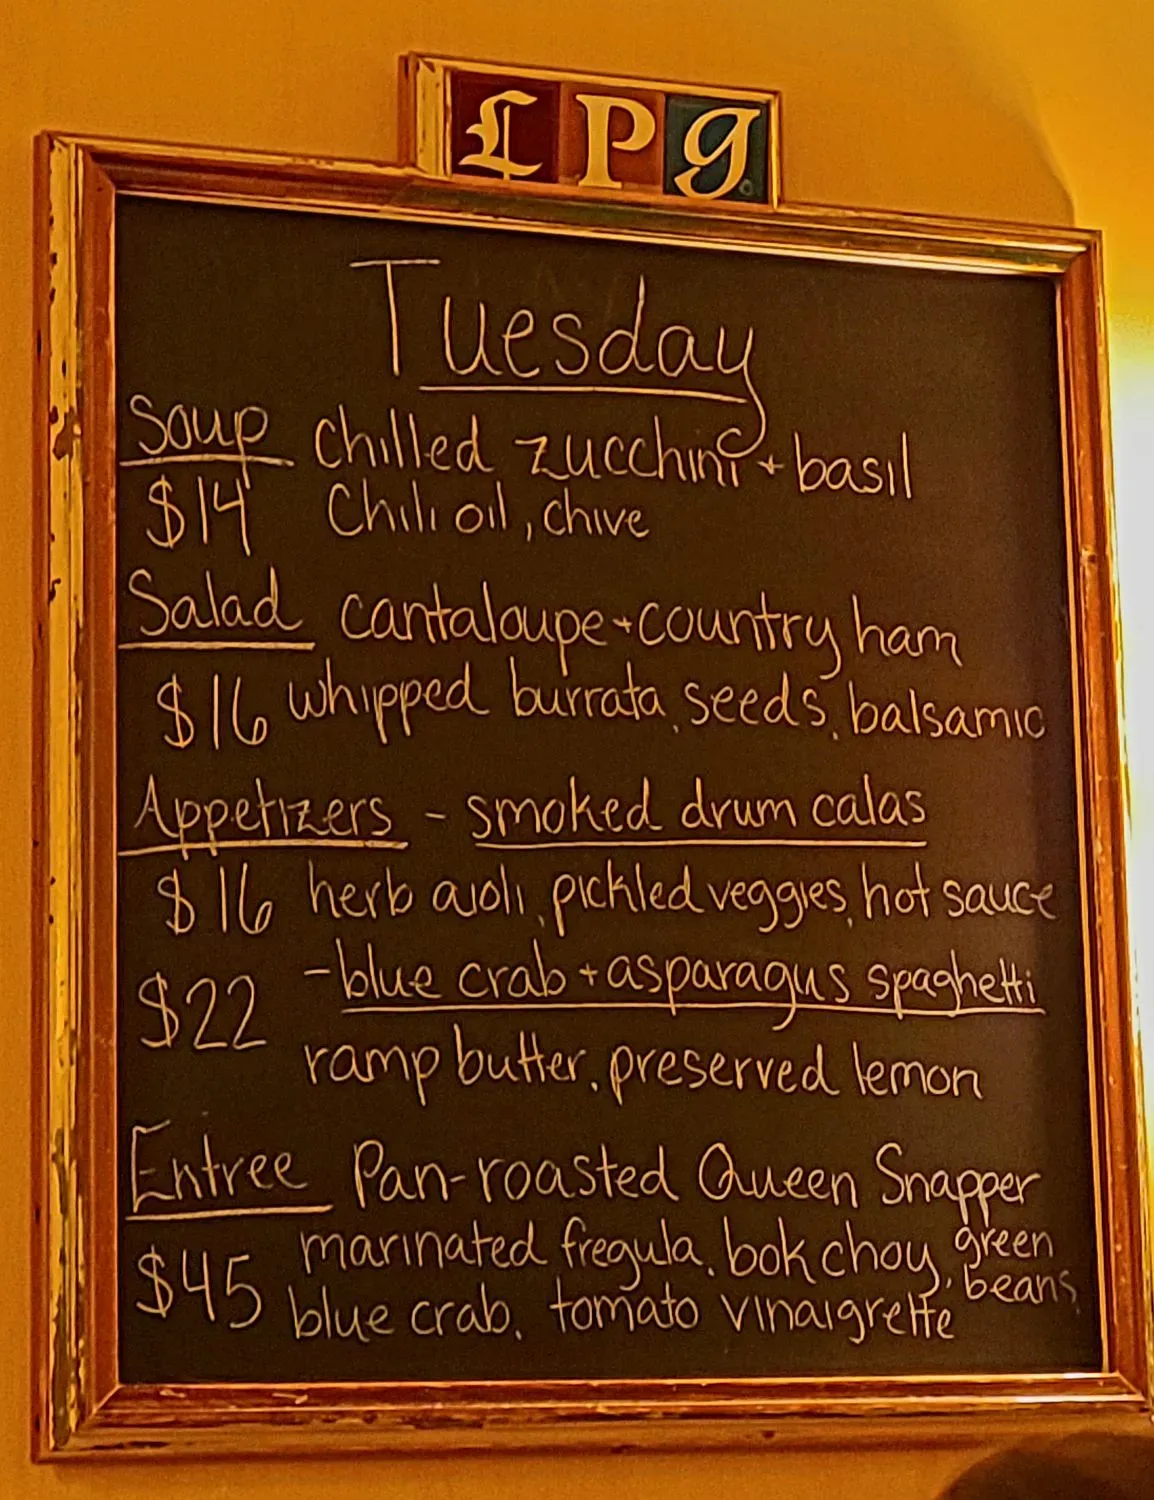 LPg
Tuesday
Soup chilled zucchini + basil
$14 Chili oil, chive
Salad cantaloupe + country ham
$16 whipped burrata, seeds, balsamic
Appetizers - smoked drum calas
$16 herb aioli, pickled veggies, hot sauce
- blue crab + asparagus spaghetti
$22 ramp butter, preserved lemon
Entree Pan-roasted Queen Snapper
$45 marinated fregula, bok choy, green beans,
blue crab, tomato vinaigrette